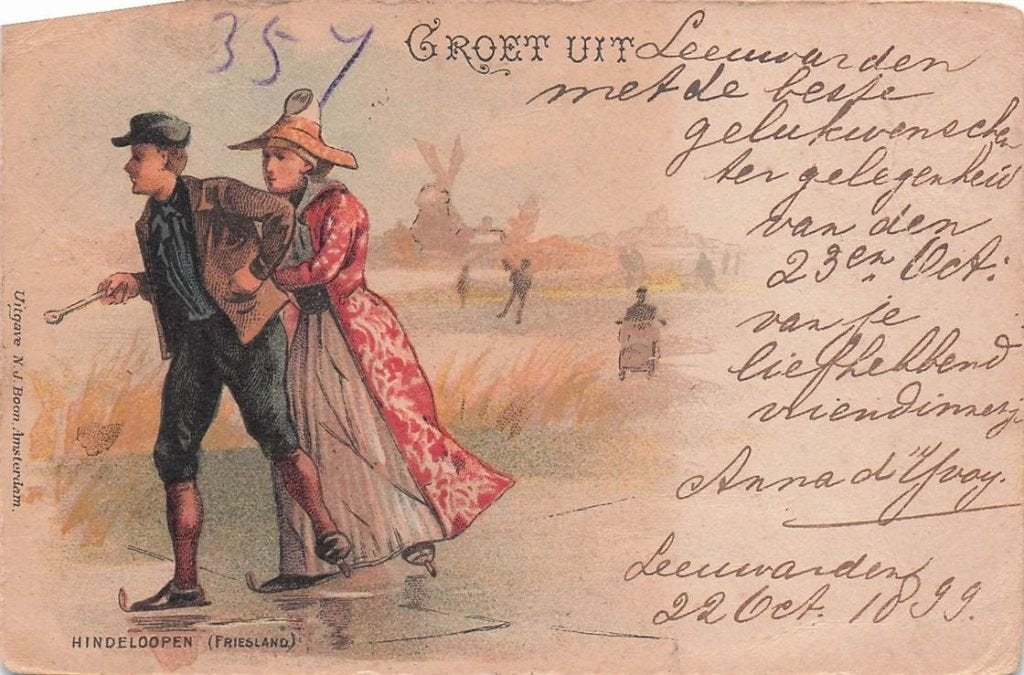 357
GROET UIT Leeuwarden
met de beste
gelukwenschen
ter gelegenheid
van den
23en Oct.
van je
liefhebbend
vriendinnetje
Anna d'Yvoy.
Leeuwarden
22 Oct. 1899.
Uitgave N. J. Boon. Amsterdam.
HINDELOOPEN (FRIESLAND)